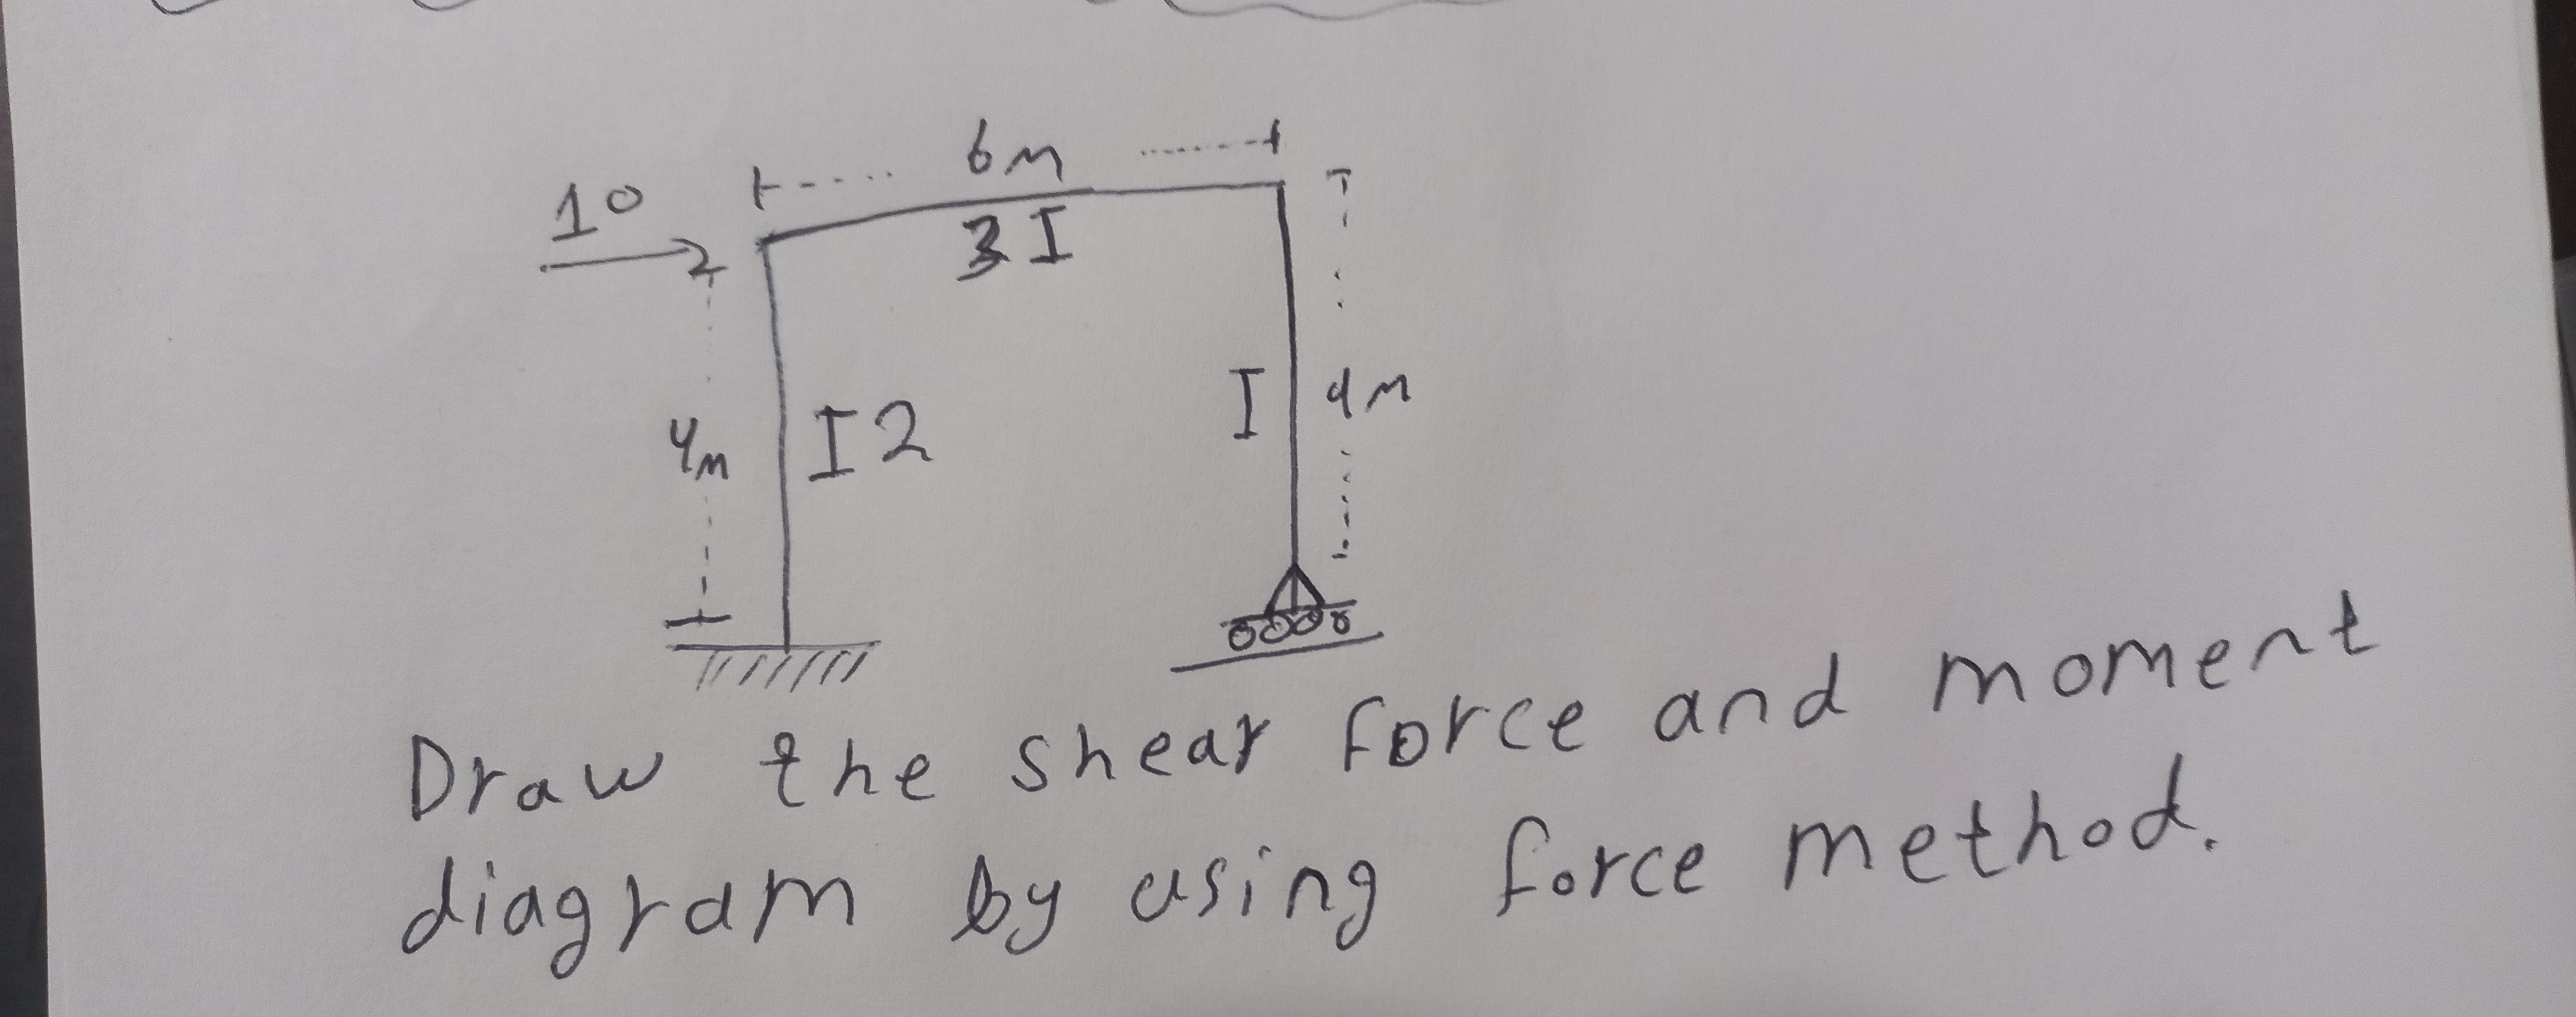 6m
10
3I
4m
I2
I
4m
Draw the shear force and moment
diagram by using force method.